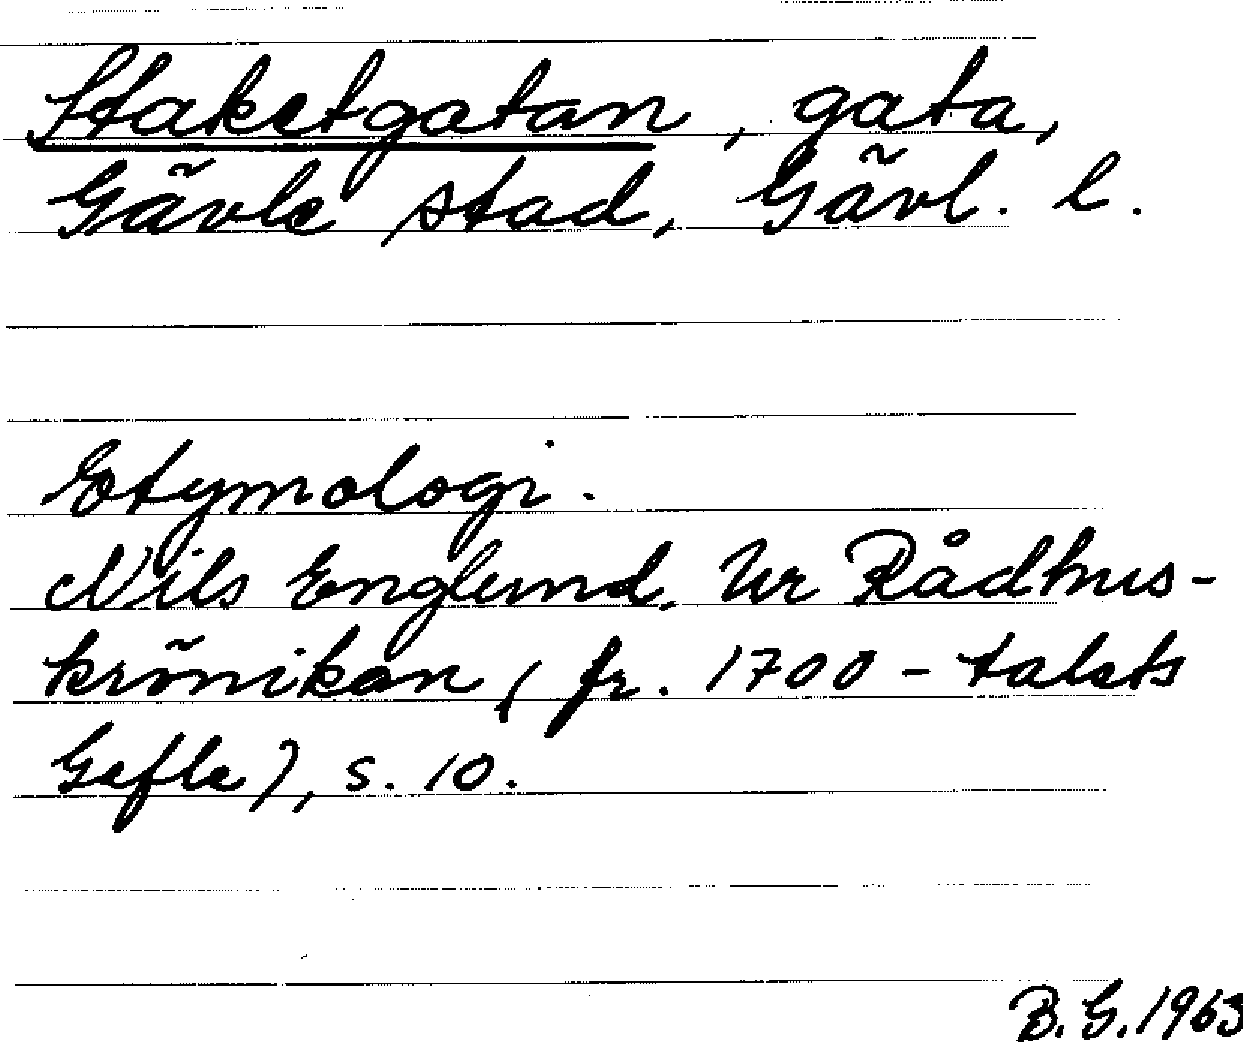 Staketgatan, gata,
Gävle stad, Gävl. l.
Etymologi.
Nils Englund. Ur Rådhus-
krönikan, (fr. 1700-talets
Gefle), s. 10.
B.G. 1963